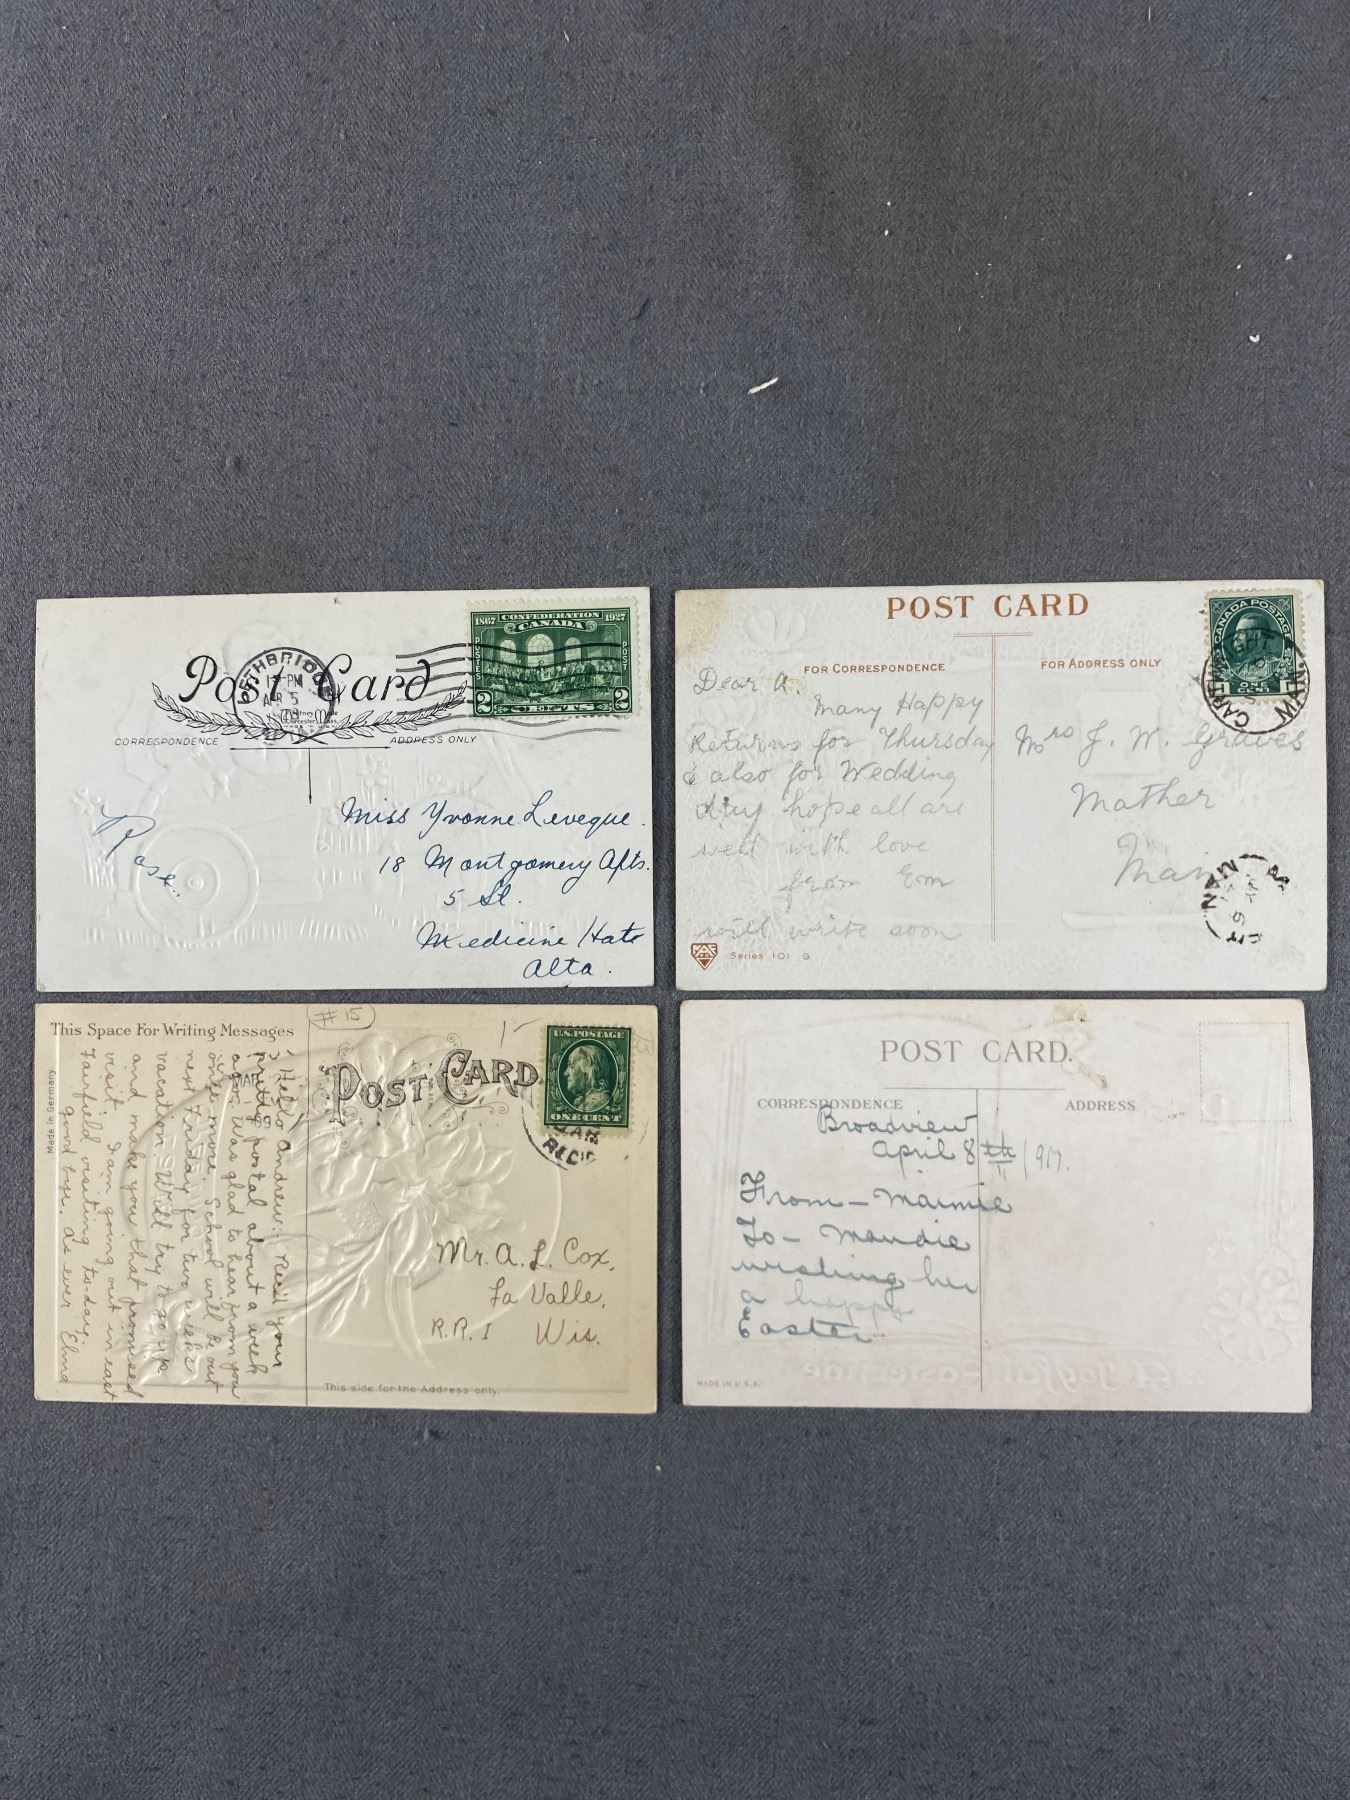 Post Card
CORRESPONDENCE
ADDRESS ONLY
LETHBRIDGE
17 PM
AP 5
Whitney Made
Worcester Mass
1867 CONFEDERATION 1927
CANADA
POSTES
POST
2 CENTS 2
Rose.
Miss Yvonne Leveque.
18 Montgomery Apts.
5 St.
Medicine Hat
Alta.
POST CARD
FOR CORRESPONDENCE
FOR ADDRESS ONLY
CANADA POSTAGE
1 ONE CENT 1
MAN.
Dear A.
Many Happy
Returns for Thursday
& also for Wedding
day hope all are
well with love
from Em
will write soon
Mrs J. W. Graves
Mather
Man
MAN
Series 101 G
This Space For Writing Messages
#15
POST CARD
U.S. POSTAGE
ONE CENT
REC'D
Made in Germany
Hello Andrew: Rec'd your
pretty postal about a week
ago. Was glad to hear from you
once more. School will be out
next Friday for two weeks
vacation. Will try to go up
and make you that promised
visit. I am going out in east
Fairfield visiting to-day.
good bye, as ever Elma
Mr. A. L. Cox,
La Valle,
R.R. 1 Wis.
This side for the Address only.
POST CARD.
CORRESPONDENCE
ADDRESS
Broadview
April 8th/1917.
From - Maimie
To - Maudie
wishing her
a happy
Easter
MADE IN U.S.A.